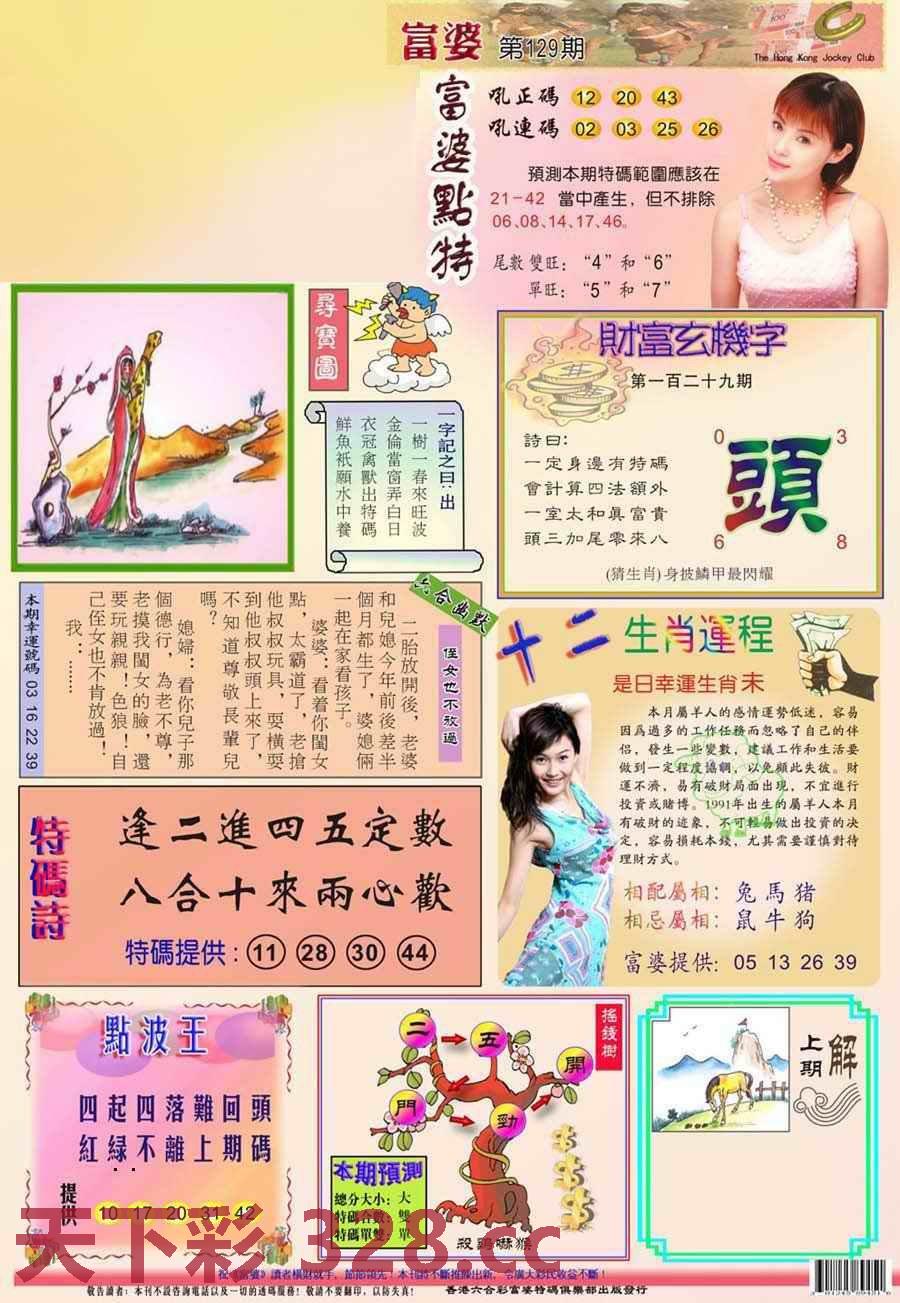 富婆 第129期
The Hong Kong Jockey Club
富婆點特
吼正碼 12 20 43
吼連碼 02 03 25 26
預測本期特碼範圍應該在
21-42 當中產生，但不排除
06、08、14、17、46。
尾數雙旺：“4”和“6”
單旺：“5”和“7”
尋寶圖
一字記之曰：出
一樹一春來旺波
金倫當窗弄白日
衣冠禽獸出特碼
鮮魚祇願水中養
財富玄機字
第一百二十九期
詩曰：
一定身邊有特碼
會計算四法額外
一室太和眞富貴
頭三加尾零來八
0 3
頭
6 8
(猜生肖)身披鱗甲最閃耀
六合幽默
侄女也不放過
二胎放開後，老婆
和兒媳今年前後差半
個月都生了，婆媳倆
一起在家看孩子。
婆婆：看着你閨女
點，太霸道了，老搶
他叔叔玩具，耍橫耍
到他叔叔頭上來了，
不知道尊敬長輩兒
嗎？
媳婦：看你兒子那
個德行，為老不尊，
老摸我閨女的臉，還
要玩親親！色狼！自
己侄女也不肯放過！
我：……
本期幸運號碼 03 16 22 39
十二生肖運程
是日幸運生肖未
本月屬羊人的感情運勢低迷，容易
因爲過多的工作任務而忽略了自己的伴
侶，發生一些變數，建議工作和生活要
做到一定程度協調，以免顧此失彼。財
運不濟，易有破財局面出現，不宜進行
投資或賭博。1991年出生的屬羊人本月
有破財的迹象，不可輕易做出投資的决
定，容易損耗本錢，尤其需要謹慎對待
理財方式。
相配屬相：兔 馬 猪
相忌屬相：鼠 牛 狗
富婆提供：05 13 26 39
特碼詩
逢二進四五定數
八合十來兩心歡
特碼提供：11 28 30 44
點波王
四起四落難回頭
紅緑不離上期碼
提供 10 17 20 31 42
搖錢樹
二 五 開
門 勁
本期預測
總分大小：大
特碼合數：雙
特碼單雙：單
殺鷄嚇猴
上期解
天下彩 328.cc
祝《富婆》讀者橫財就手，節節領先！本刊將不斷推陳出新，令廣大彩民收益不斷！
敬告讀者：本刊不設咨詢電話以及一切的透碼服務！敬請不要翻印，以防失真！
香港六合彩富婆特碼俱樂部出版發行